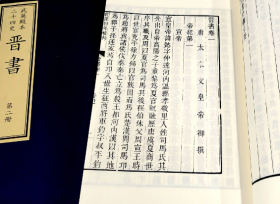 武英殿本
二十四史
晉書
第二冊
晉書卷一
唐太宗文皇帝御撰
帝紀第一
宣帝
宣皇帝諱懿字仲達河內溫縣孝敬里人姓司馬氏其
先出自帝高陽之子重黎爲夏官祝融歷唐虞夏商世
序其職及周以夏官爲司馬其後程伯休父周宣王時
以世官克平徐方錫以官族因而爲氏楚漢間司馬卬
爲趙將與諸侯伐秦秦亡立爲殷王都河內漢以其地
爲郡子孫遂家焉自卬八世生征西將軍鈞字叔平鈞